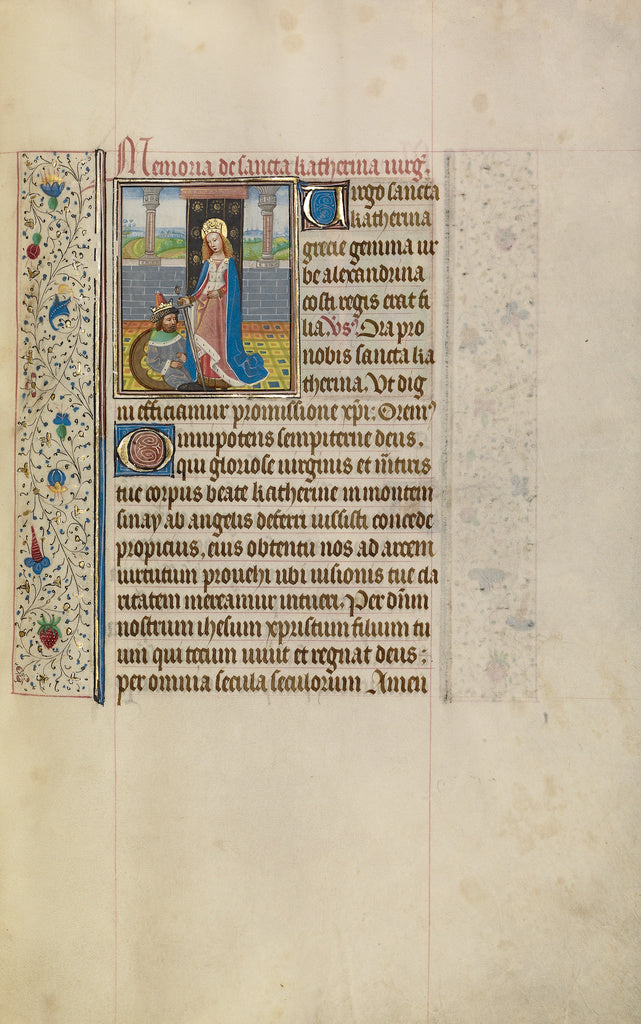 Memoria de sancta katherina uirg̃.
Uirgo sancta
katherina
grecie gemma ur
be alexandrina
costi regis erat fi
lia Vs̃. Ora pro
nobis sancta ka
therina. Vt dig
ni efficiamur promissione xp̃i: Orem̃
Omnipotens sempiterne deus.
qui gloriose uirginis et m̃tiris
tue corpus beate katherine in montem
sinay ab angelis deferri iussisti concede
propicius, eius obtentu nos ad arcem
uirtutum prouehi ubi uisionis tue cla
ritatem mereamur intueri. Per dñm
nostrum ihesum xpristum filium tu
um qui tecum uiuit et regnat deus:
per omnia secula seculorum Amen